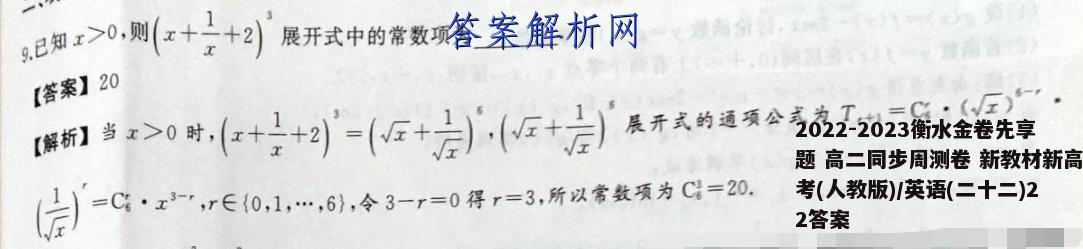 9.已知 x>0,则(x+1/x+2)^3 展开式中的常数项
答案解析网
【答案】20
【解析】当 x>0 时,(x+1/x+2)^3=(√x+1/√x)^6,(√x+1/√x)^6 展开式的通项公式为 T_{r+1}=C_6^r·(√x)^{6-r}·
(1/√x)^r=C_6^r·x^{3-r},r∈{0,1,…,6},令 3-r=0 得 r=3,所以常数项为 C_6^3=20.
2022-2023衡水金卷先享
题 高二同步周测卷 新教材新高
考(人教版)/英语(二十二)2
2答案